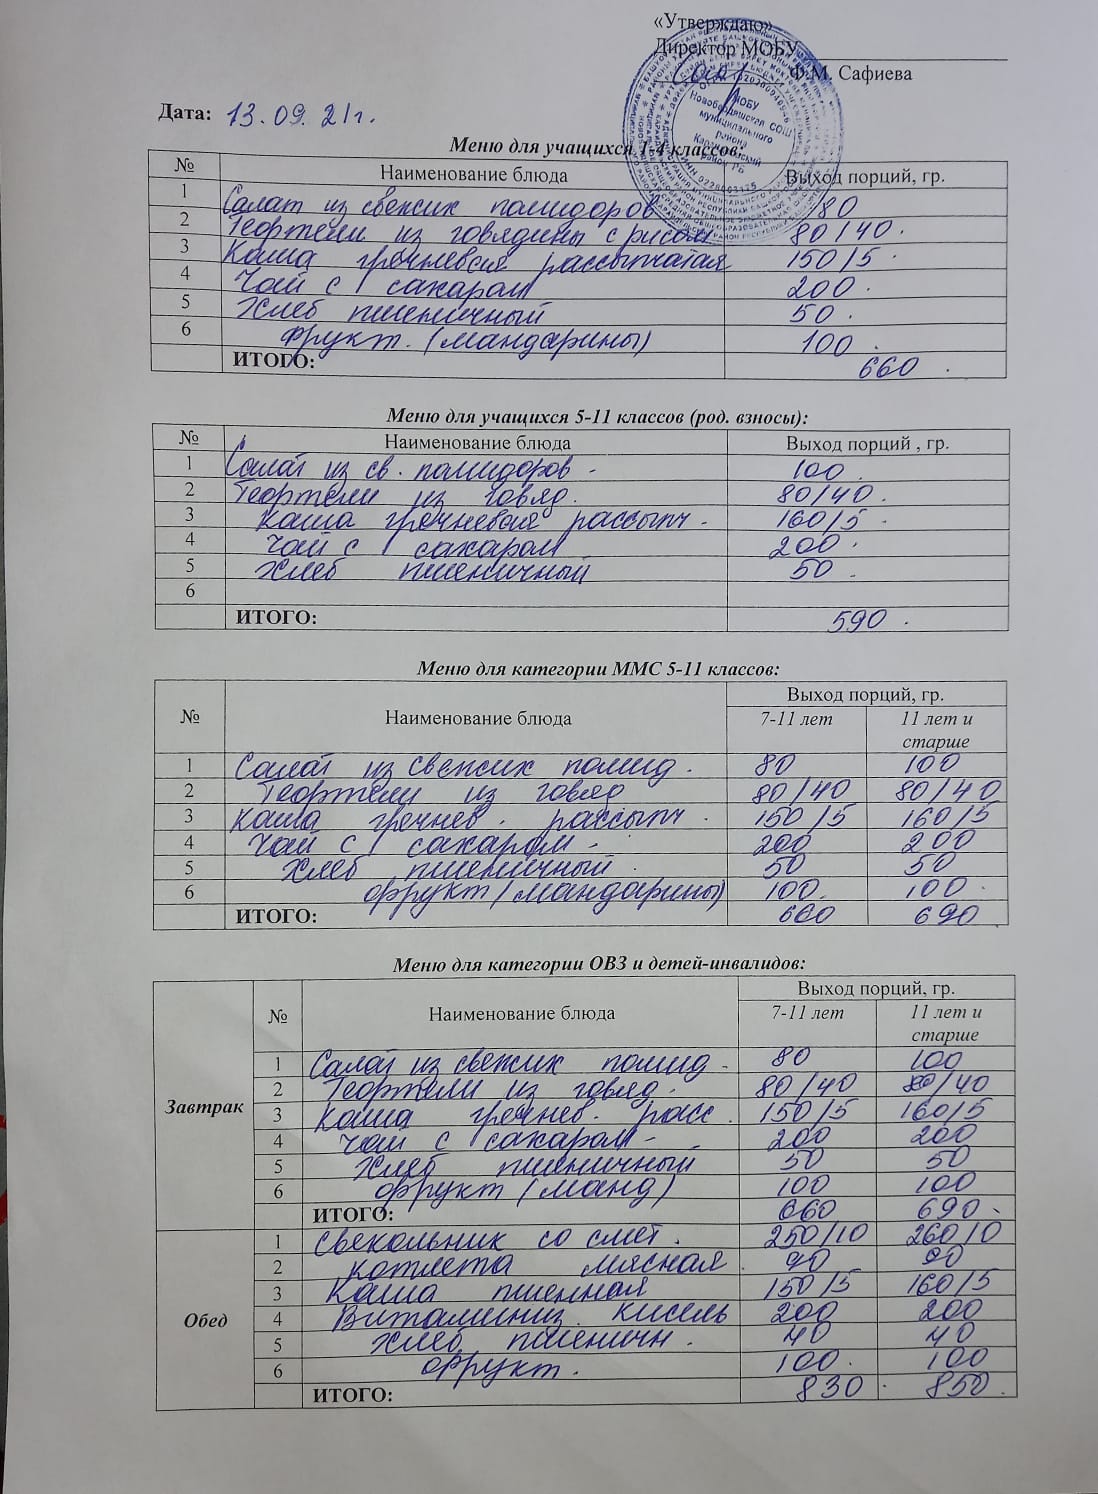 «Утверждаю»
Директор МОБУ
Ф.М. Сафиева
МОБУ
Новобердяшская СОШ
муниципального
района
Караидельский
район РБ
Дата: 13.09.21г.
Меню для учащихся 1-4 классов:
№ Наименование блюда Выход порций, гр.
1 Салат из свежих помидоров 80
2 Тефтели из говядины с рисом 80/40.
3 Каша гречневая рассыпчатая 150/5.
4 Чай с сахаром 200.
5 Хлеб пшеничный 50.
6 фрукт. (мандарины) 100.
ИТОГО: 660.
Меню для учащихся 5-11 классов (род. взносы):
№ Наименование блюда Выход порций , гр.
1 Салат из св. помидоров - 100
2 Тефтели из говяд. 80/40.
3 Каша гречневая рассыпч. 160/5.
4 Чай с сахаром 200.
5 Хлеб пшеничный 50.
6
ИТОГО: 590.
Меню для категории ММС 5-11 классов:
№ Наименование блюда Выход порций, гр.
7-11 лет 11 лет и
старше
1 Салат из свежих помид. 80 100
2 Тефтели из говяд 80/40 80/40
3 Каша гречнев. рассыпч. 150/5 160/5
4 Чай с сахаром - 200 200
5 Хлеб пшеничный. 50 50
6 фрукт (мандарины) 100. 100.
ИТОГО: 660 690
Меню для категории ОВЗ и детей-инвалидов:
№ Наименование блюда Выход порций, гр.
7-11 лет 11 лет и
старше
Завтрак
1 Салат из свежих помид. 80 100
2 Тефтели из говяд. 80/40 80/40
3 Каша гречнев. расс. 150/5 160/5
4 Чай с сахаром - 200 200
5 Хлеб пшеничный 50 50
6 фрукт (манд) 100 100
ИТОГО: 660 690.
Обед
1 Свекольник со смет. 250/10 260/10
2 Котлета мясная. 90 90
3 Каша пшенная 150/5 160/5
4 Витаминиз. кисель 200 200
5 Хлеб пшеничн. 40 40
6 фрукт. 100. 100
ИТОГО: 830. 850.